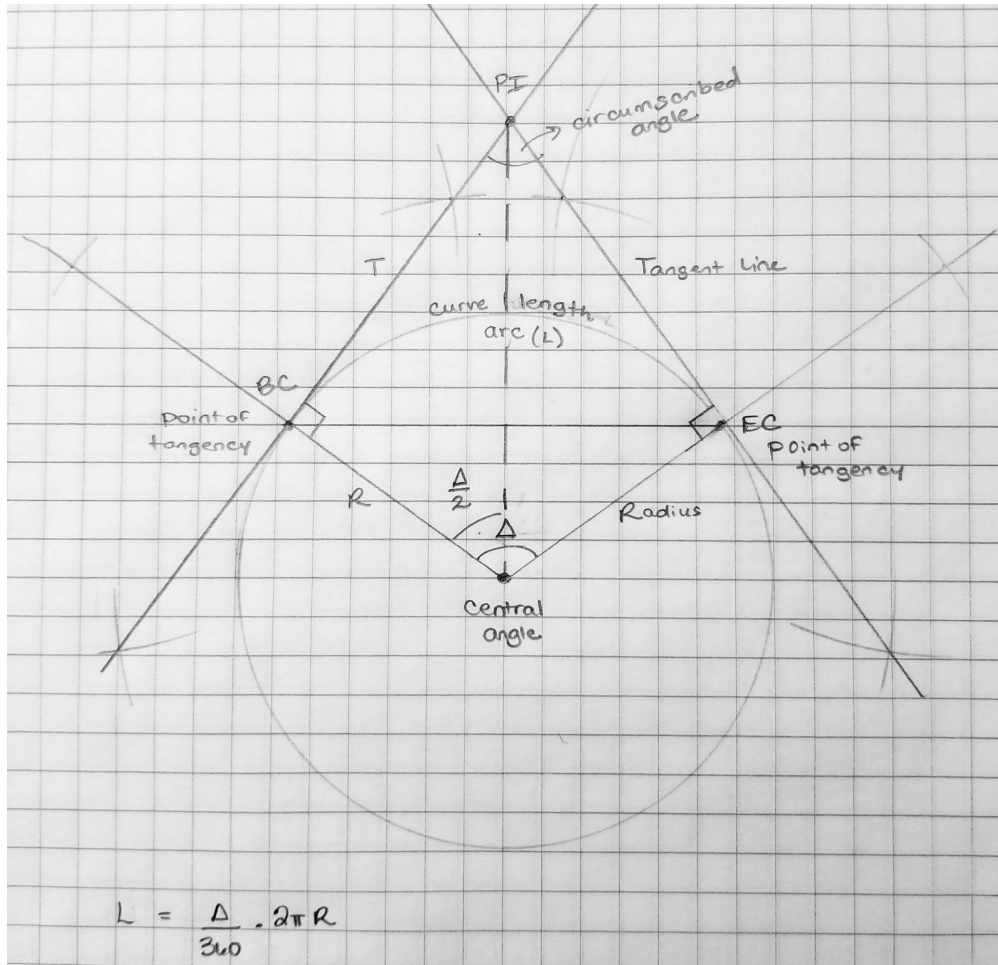 PI
circumscribed
angle
T
Tangent Line
curve length
arc (L)
BC
point of
tangency
EC
point of
tangency
R
Δ
2
Δ
Radius
Central
angle
L = Δ/360 . 2πR